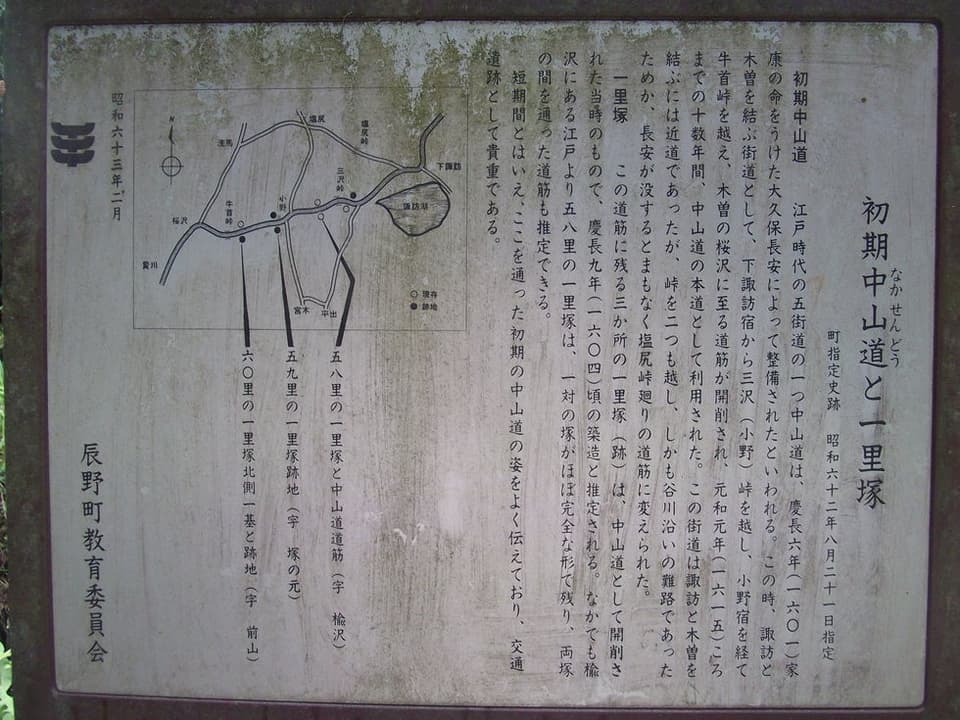 初期中山道と一里塚
なかせんどう
町指定史跡　昭和六十二年八月二十一日指定
初期中山道　　江戸時代の五街道の一つ中山道は、慶長六年(一六〇一)家
康の命をうけた大久保長安によって整備されたといわれる。この時、諏訪と
木曽を結ぶ街道として、下諏訪宿から三沢(小野)峠を越し、小野宿を経て
牛首峠を越え、木曽の桜沢に至る道筋が開削され、元和元年(一六一五)ころ
までの十数年間、中山道の本道として利用された。この街道は諏訪と木曽を
結ぶには近道であったが、峠を二つも越し、しかも谷川沿いの難路であった
ためか、長安が没するとまもなく塩尻峠廻りの道筋に変えられた。
一里塚　　この道筋に残る三か所の一里塚(跡)は、中山道として開削さ
れた当時のもので、慶長九年(一六〇四)頃の築造と推定される。なかでも楡
沢にある江戸より五八里の一里塚は、一対の塚がほぼ完全な形で残り、両塚
の間を通った道筋も推定できる。
短期間とはいえ、ここを通った初期の中山道の姿をよく伝えており、交通
遺跡として貴重である。
N
塩尻
塩尻峠
洗馬
下諏訪
三沢峠
諏訪湖
小野
牛首峠
桜沢
贄川
宮木
平出
○現存
●跡地
五八里の一里塚と中山道道筋(字　楡沢)
五九里の一里塚跡地(字　塚の元)
六〇里の一里塚北側一基と跡地(字　前山)
昭和六十三年二月
辰野町教育委員会